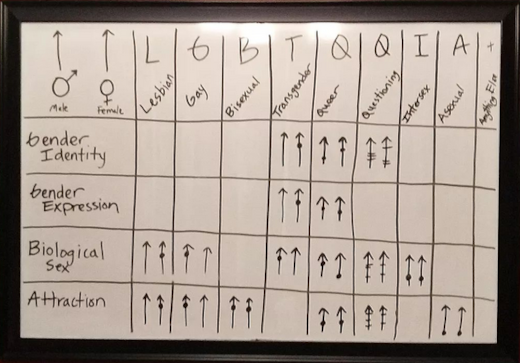 L G B T Q Q I A +
Male Female Lesbian Gay Bisexual Transgender Queer Questioning Intersex Asexual Anything Else
Gender
Identity
Gender
Expression
Biological
Sex
Attraction